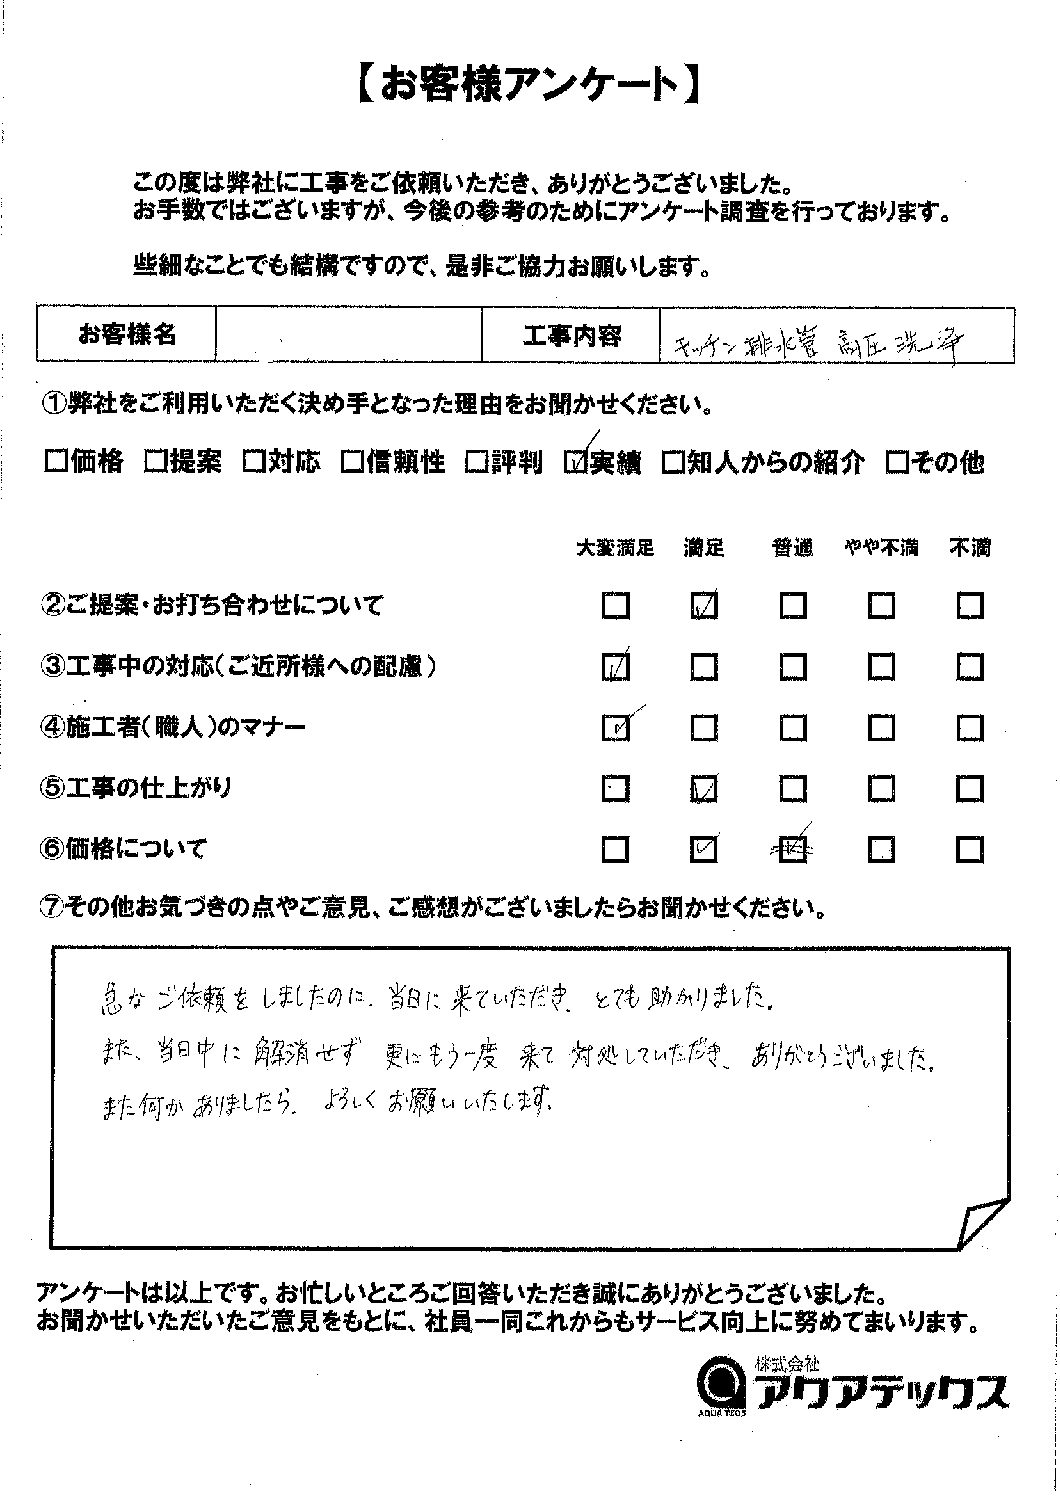 【お客様アンケート】
この度は弊社に工事をご依頼いただき、ありがとうございました。
お手数ではございますが、今後の参考のためにアンケート調査を行っております。
些細なことでも結構ですので、是非ご協力お願いします。
お客様名 工事内容 キッチン排水管 高圧洗浄
①弊社をご利用いただく決め手となった理由をお聞かせください。
□価格 □提案 □対応 □信頼性 □評判 ☑実績 □知人からの紹介 □その他
大変満足 満足 普通 やや不満 不満
②ご提案・お打ち合わせについて □ ☑ □ □ □
③工事中の対応(ご近所様への配慮) ☑ □ □ □ □
④施工者(職人)のマナー ☑ □ □ □ □
⑤工事の仕上がり □ ☑ □ □ □
⑥価格について □ ☑ ☑ □ □
⑦その他お気づきの点やご意見、ご感想がございましたらお聞かせください。
急なご依頼をしましたのに、当日に来ていただき、とても助かりました。
また、当日中に解消せず更にもう一度来て対処していただき、ありがとうございました。
また何かありましたら、よろしくお願いいたします。
アンケートは以上です。お忙しいところご回答いただき誠にありがとうございました。
お聞かせいただいたご意見をもとに、社員一同これからもサービス向上に努めてまいります。
株式会社
アクアテックス
AQUA TECS